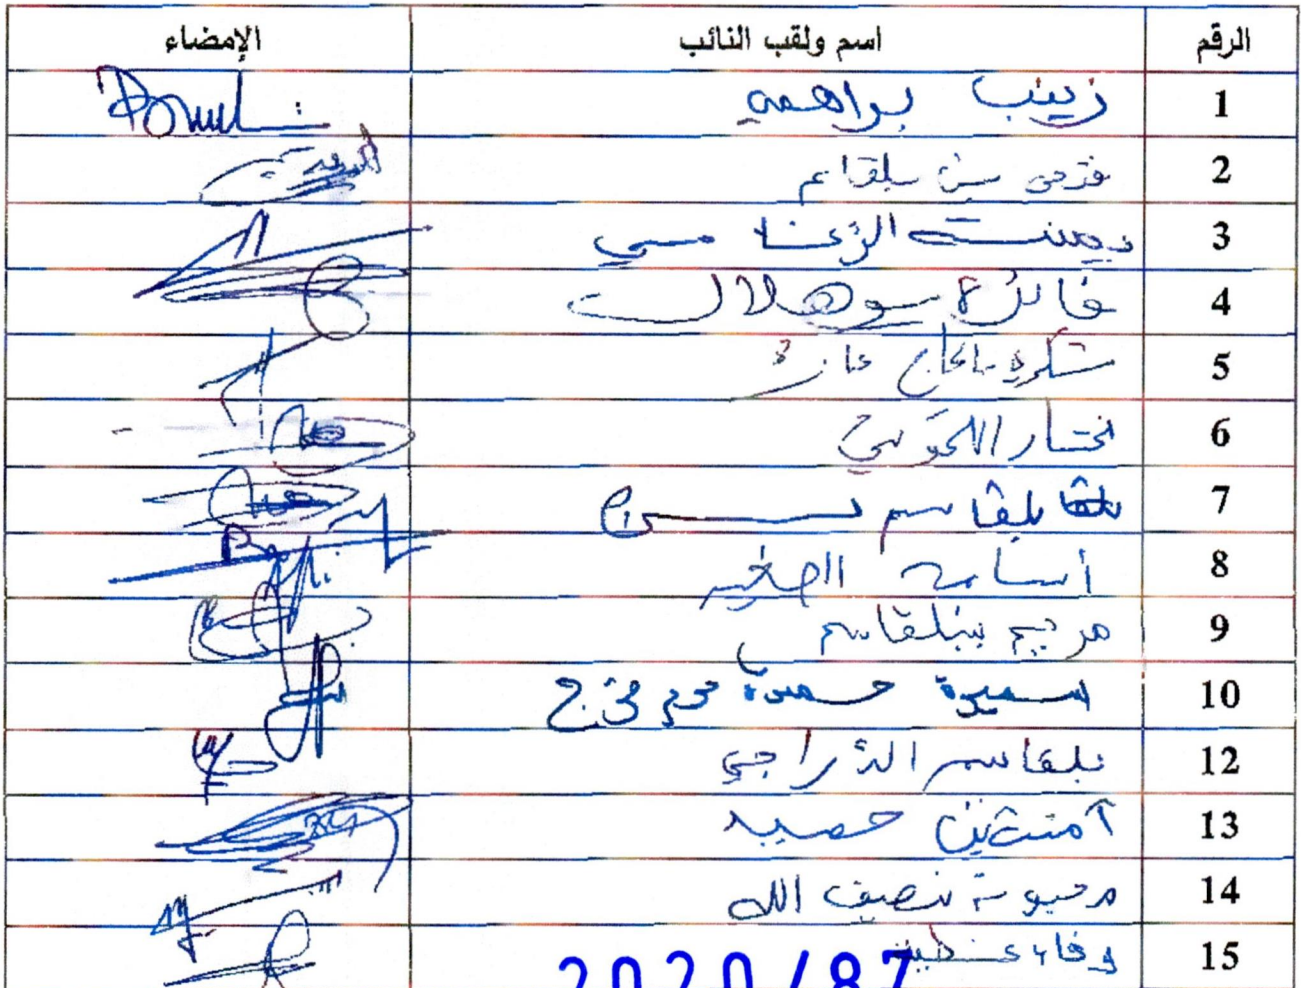 الرقم اسم ولقب النائب الإمضاء
1 زينب براهمي
2 فتحي بن بلقاسم
3 يمينة الزغلامي
4 فائزة بوهلال
5 بلحاج
6 مختار اللموشي
7 بلقاسم حسن
8 أسامة الصغير
9 مريم بنبلقاسم
10 سميرة حمودة
12 بلقاسم الدراجي
13 آمنة بن حميد
14 محبوبة ضيف الله
15 وفاء عطية
2020/87